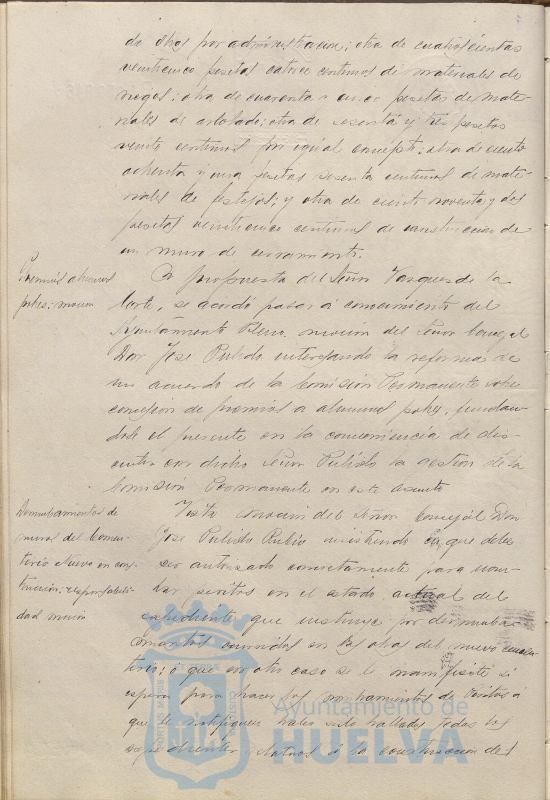 de obras por administracion; otra de cuatrocientas
veinticinco pesetas catorce centimos de materiales de
riegos; otra de cuarenta y cinco pesetas de mate-
riales de arbolado; otra de sesenta y tres pesetas
veinte centimos por igual concepto; otra de ciento
ochenta y una pesetas sesenta centimos de mate-
riales de festejos; y otra de ciento noventa y dos
pesetas veinticinco centimos de construccion de
un muro de cerramiento.
Premios alumnos
pobres: mocion
A propuesta del Señor Vazquez de la
Corte, se acordó pasar a conocimiento del
Ayuntamiento Pleno mocion del Señor Concejal
Don José Pulido interesando la reforma de
un acuerdo de la Comisión Permanente sobre
concesion de premios a alumnos pobres, fundan-
dose el presente en la conveniencia de dis-
cutir con dicho Señor Pulido la gestion de la
Comisión Permanente en este asunto
Derrumbamientos de
mural del Cemen-
terio Nuevo en cons-
trucción: responsabili-
dad mocion
Vista mocion del Señor Concejal Don
José Pulido Rubio insistiendo en que debe
ser autorizado concretamente para nom-
brar peritos en el estado actual del
expediente que instruye por derrumba-
mientos ocurridos en las obras del nuevo cemen-
terio; o que en otro caso se le manifieste si
espera para hacer los nombramientos de peritos a
que le notifiquen haber sido hallados todos los
expedientes relativos a la construccion del
Ayuntamiento de
HUELVA